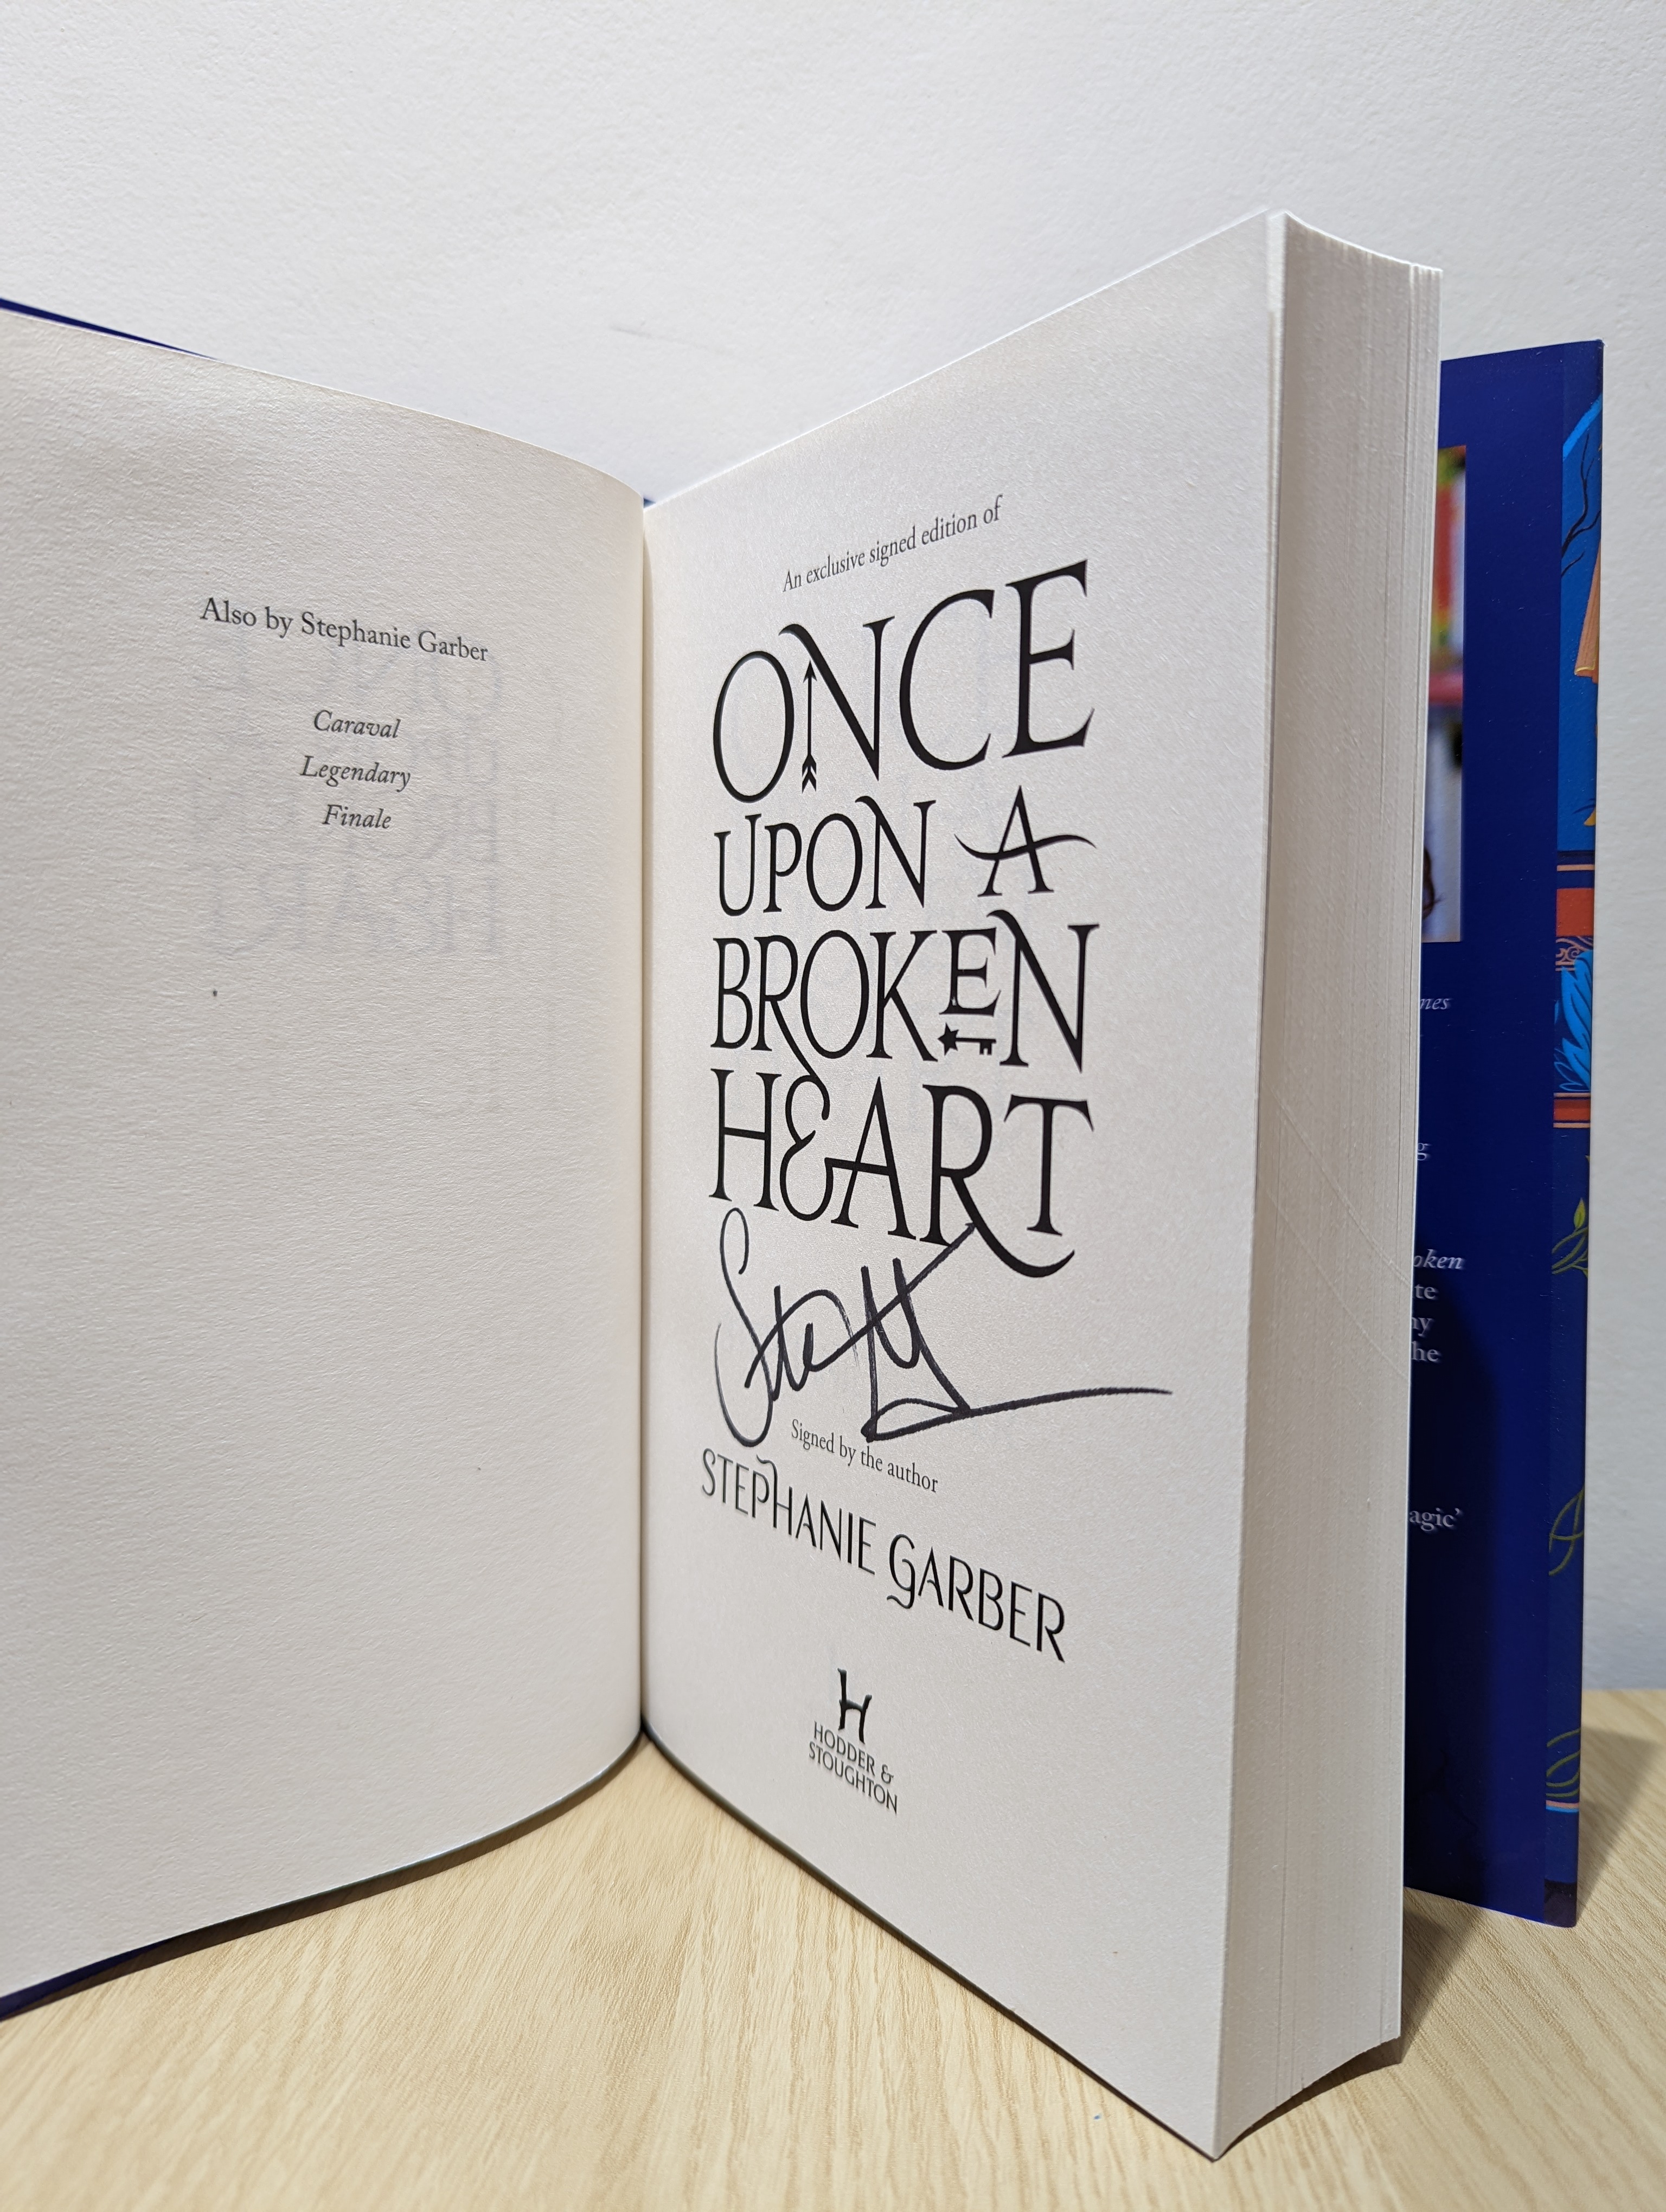 Also by Stephanie Garber
Caraval
Legendary
Finale
An exclusive signed edition of
ONCE
UPON A
BROKEN
HEART
Signed by the author
STEPHANIE GARBER
H
HODDER &
STOUGHTON
agic’